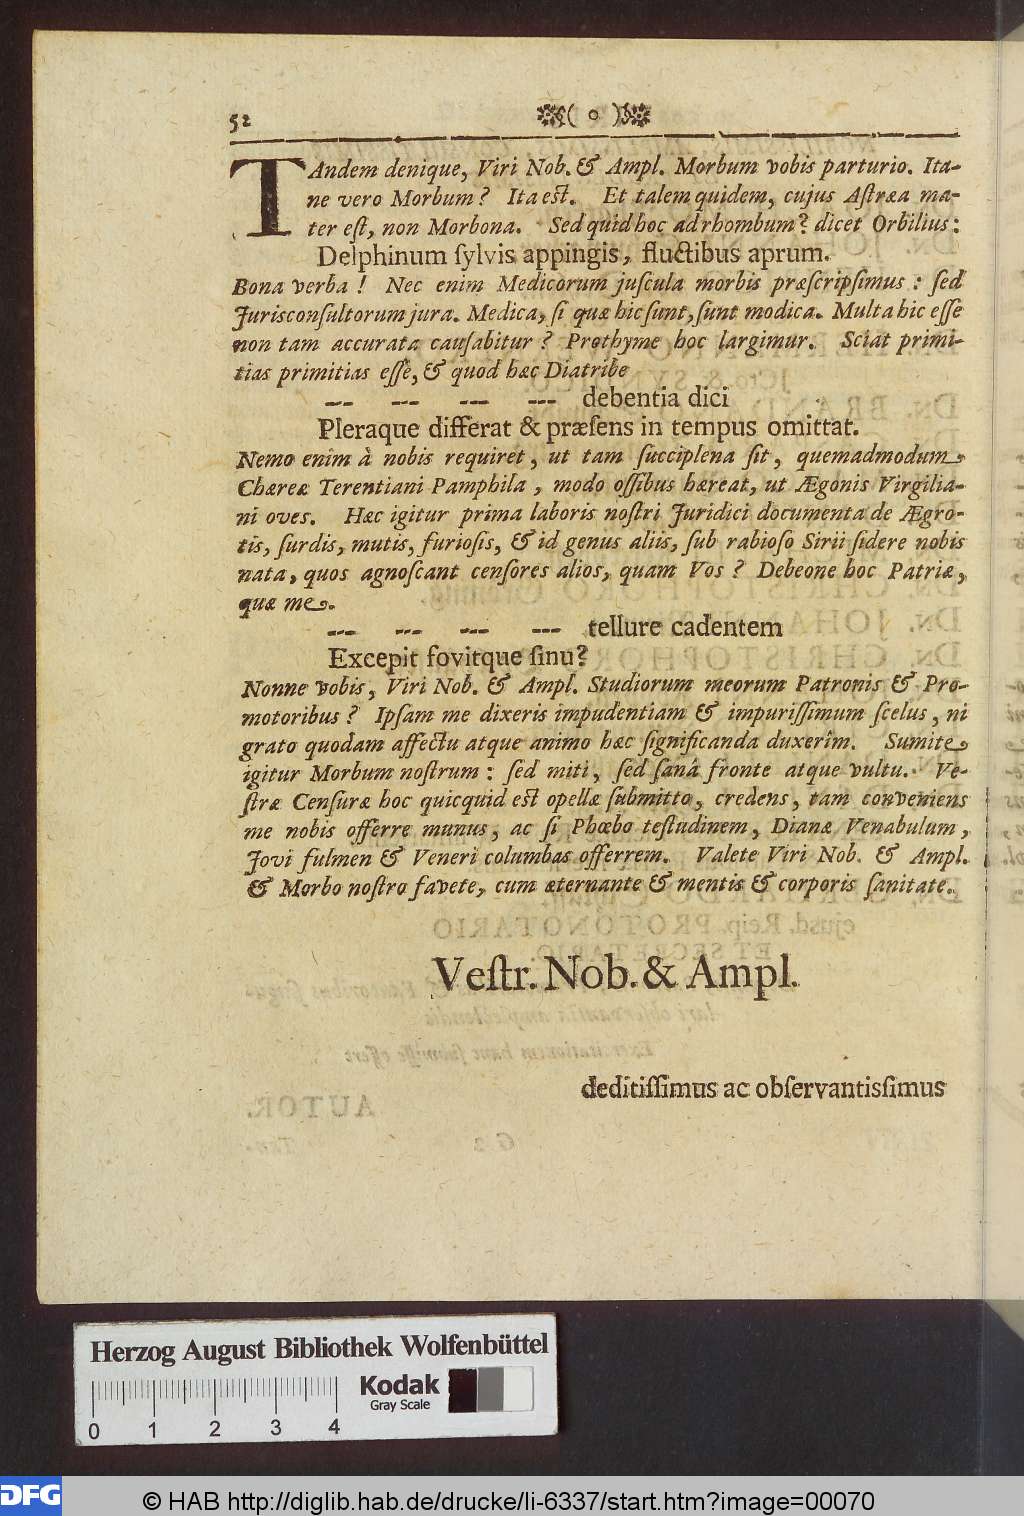 52
TAndem denique, Viri Nob. & Ampl. Morbum vobis parturio. Ita-
ne vero Morbum? Ita est. Et talem quidem, cujus Astræa ma-
ter eſt, non Morbona. Sed quid hoc ad rhombum? dicet Orbilius:
Delphinum ſylvis appingis, fluctibus aprum.
Bona verba! Nec enim Medicorum juſcula morbis præſcripſimus: ſed
Jurisconſultorum jura. Medica, ſi quæ hic ſunt, ſunt modica. Multa hic eſſe
non tam accurata cauſabitur? Prothyme hoc largimur. Sciat primi-
tias primitias eſſe, & quod hæc Diatribe
-- -- -- -- debentia dici
Pleraque differat & præſens in tempus omittat.
Nemo enim à nobis requiret, ut tam ſucciplena ſit, quemadmodum
Chæreæ Terentiani Pamphila, modo oſſibus hæreat, ut Ægonis Virgilia-
ni oves. Hæc igitur prima laboris noſtri Juridici documenta de Ægro-
tis, ſurdis, mutis, furioſis, & id genus aliis, ſub rabioſo Sirii ſidere nobis
nata, quos agnoſcant cenſores alios, quam Vos? Debeone hoc Patriæ,
quæ me.
-- -- -- -- tellure cadentem
Excepit fovitque ſinu?
Nonne vobis, Viri Nob. & Ampl. Studiorum meorum Patronis & Pro-
motoribus? Ipſam me dixeris impudentiam & impuriſſimum ſcelus, ni
grato quodam affectu atque animo hæc ſignificanda duxerim. Sumite
igitur Morbum noſtrum: ſed miti, ſed ſanâ fronte atque vultu. Ve-
ſtræ Cenſuræ hoc quicquid est opellæ ſubmitto, credens, tam conveniens
me nobis offerre munus, ac ſi Phœbo teſtudinem, Dianæ Venabulum,
Jovi fulmen & Veneri columbas offerrem. Valete Viri Nob. & Ampl.
& Morbo noſtro favete, cum æternante & mentis & corporis ſanitate.
Veſtr. Nob. & Ampl.
deditiſſimus ac obſervantisſimus
Herzog August Bibliothek Wolfenbüttel
Kodak
Gray Scale
0 1 2 3 4
DFG
© HAB http://diglib.hab.de/drucke/li-6337/start.htm?image=00070